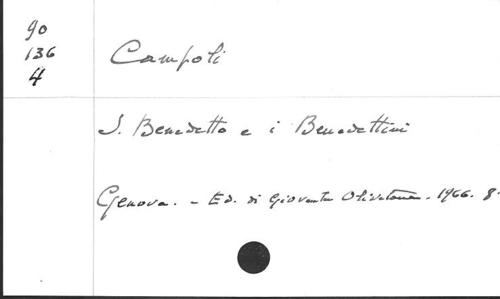 90
136
4
Campoli
S. Benedetto e i Benedettini
Genova. - Ed. di Gioventù Olivetana. 1966. 8.